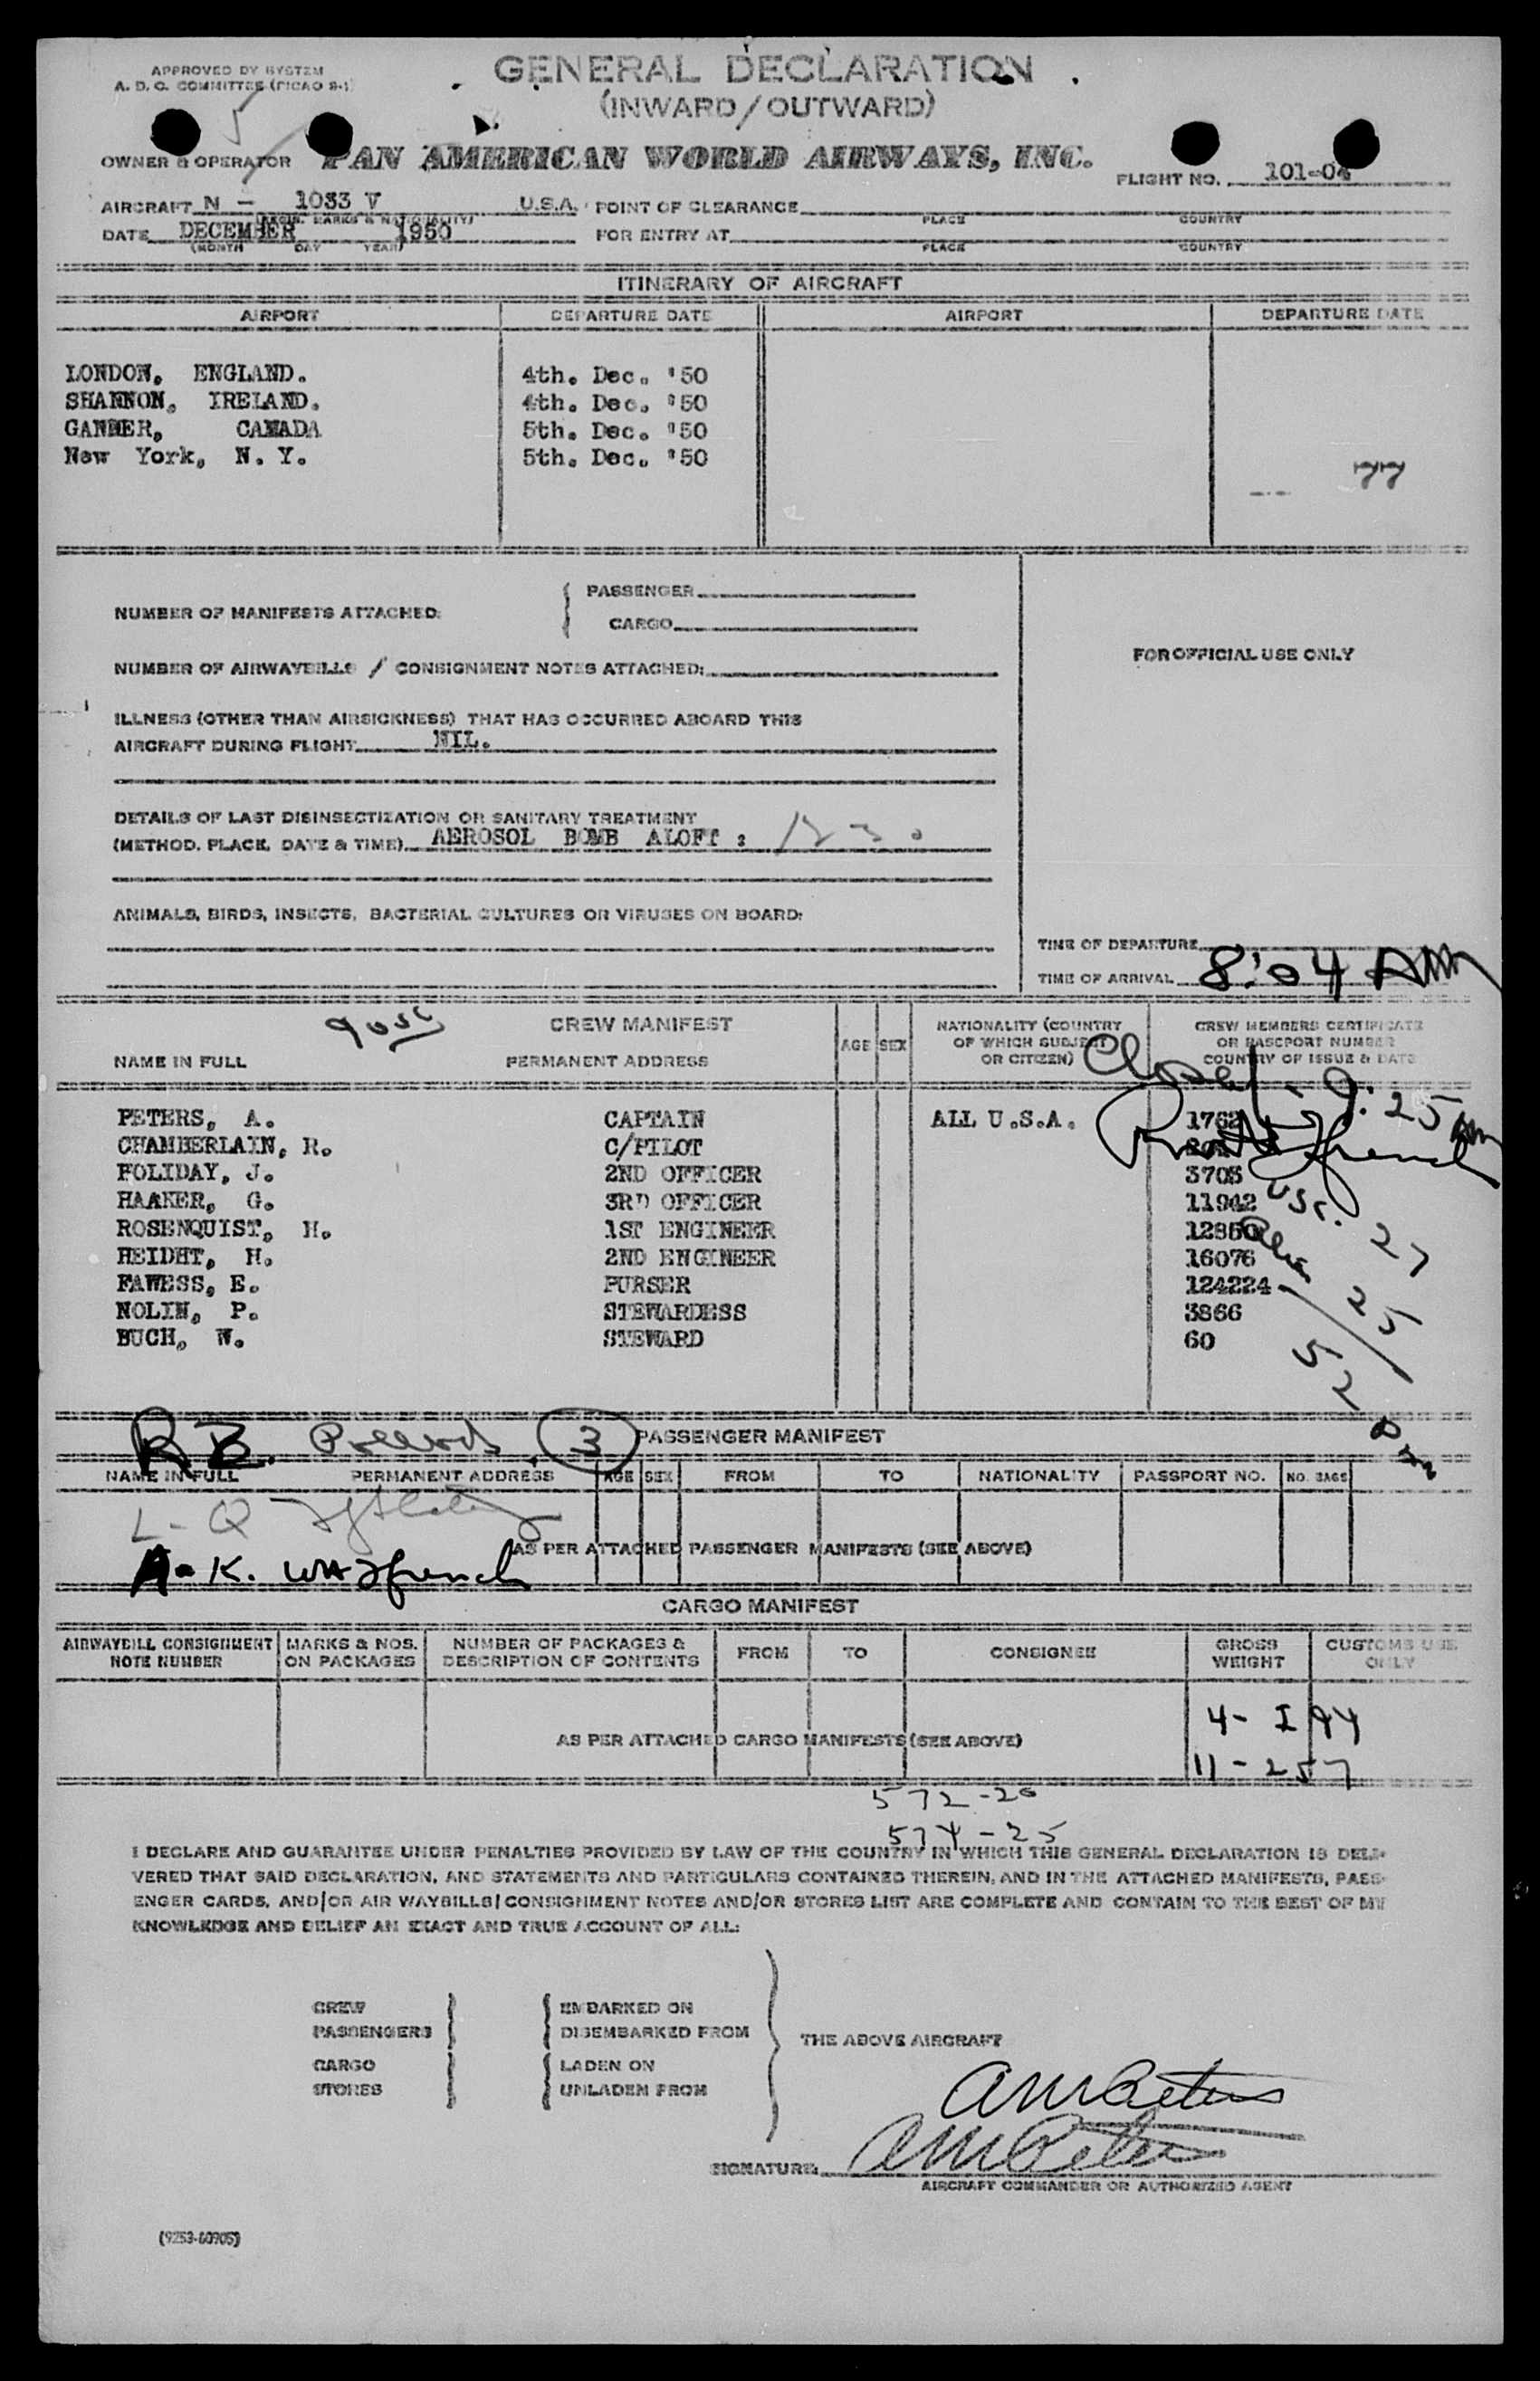 APPROVED BY SYSTEM
A. D. O. COMMITTEE (PICAO S-1)
GENERAL DECLARATION
(INWARD/OUTWARD)
OWNER & OPERATOR PAN AMERICAN WORLD AIRWAYS, INC.
FLIGHT NO. 101-04
AIRCRAFT N - 1033 V U.S.A. POINT OF CLEARANCE
(REGIS. MARKS & NATIONALITY) PLACE COUNTRY
DATE DECEMBER 1950 FOR ENTRY AT
(MONTH DAY YEAR) PLACE COUNTRY
ITINERARY OF AIRCRAFT
AIRPORT DEPARTURE DATE AIRPORT DEPARTURE DATE
LONDON, ENGLAND. 4th. Dec. '50
SHANNON, IRELAND. 4th. Dec. '50
GANDER, CANADA 5th. Dec. '50
New York, N. Y. 5th. Dec. '50
77
NUMBER OF MANIFESTS ATTACHED: PASSENGER
CARGO
NUMBER OF AIRWAYBILLS / CONSIGNMENT NOTES ATTACHED:
FOR OFFICIAL USE ONLY
ILLNESS (OTHER THAN AIRSICKNESS) THAT HAS OCCURRED ABOARD THIS
AIRCRAFT DURING FLIGHT NIL.
DETAILS OF LAST DISINSECTIZATION OR SANITARY TREATMENT
(METHOD, PLACE, DATE & TIME) AEROSOL BOMB ALOFT :
ANIMALS, BIRDS, INSECTS, BACTERIAL CULTURES OR VIRUSES ON BOARD:
TIME OF DEPARTURE
TIME OF ARRIVAL 8:04 AM
CREW MANIFEST
NAME IN FULL PERMANENT ADDRESS AGE SEX NATIONALITY (COUNTRY OF WHICH SUBJECT OR CITIZEN) CREW MEMBERS CERTIFICATE OR PASSPORT NUMBER COUNTRY OF ISSUE & DATE
9:25 AM
PETERS, A. CAPTAIN ALL U.S.A. 1762
CHAMBERLAIN, R. C/PILOT
FOLIDAY, J. 2ND OFFICER 3703
HAAKER, G. 3RD OFFICER 11942
ROSENQUIST, H. 1ST ENGINEER
HEIDHT, H. 2ND ENGINEER 16076
FAWESS, E. PURSER 124224
NOLIN, P. STEWARDESS 3866
BUCH, W. STEWARD 60
R B. 3
PASSENGER MANIFEST
NAME IN FULL PERMANENT ADDRESS AGE SEX FROM TO NATIONALITY PASSPORT NO. NO. BAGS
L - Q
AS PER ATTACHED PASSENGER MANIFESTS (SEE ABOVE)
A - K.
CARGO MANIFEST
AIRWAYBILL CONSIGNMENT NOTE NUMBER MARKS & NOS. ON PACKAGES NUMBER OF PACKAGES & DESCRIPTION OF CONTENTS FROM TO CONSIGNEE GROSS WEIGHT CUSTOMS USE ONLY
4 - I 94
AS PER ATTACHED CARGO MANIFESTS (SEE ABOVE)
11 - 257
572-20
574-25
I DECLARE AND GUARANTEE UNDER PENALTIES PROVIDED BY LAW OF THE COUNTRY IN WHICH THIS GENERAL DECLARATION IS DELI-
VERED THAT SAID DECLARATION, AND STATEMENTS AND PARTICULARS CONTAINED THEREIN, AND IN THE ATTACHED MANIFESTS, PASS-
ENGER CARDS, AND/OR AIR WAYBILLS/CONSIGNMENT NOTES AND/OR STORES LIST ARE COMPLETE AND CONTAIN TO THE BEST OF MY
KNOWLEDGE AND BELIEF AN EXACT AND TRUE ACCOUNT OF ALL:
CREW EMBARKED ON
PASSENGERS DISEMBARKED FROM
THE ABOVE AIRCRAFT
CARGO LADEN ON
STORES UNLADEN FROM
AM Peters
SIGNATURE: AM Peters
AIRCRAFT COMMANDER OR AUTHORIZED AGENT
(9253-60905)